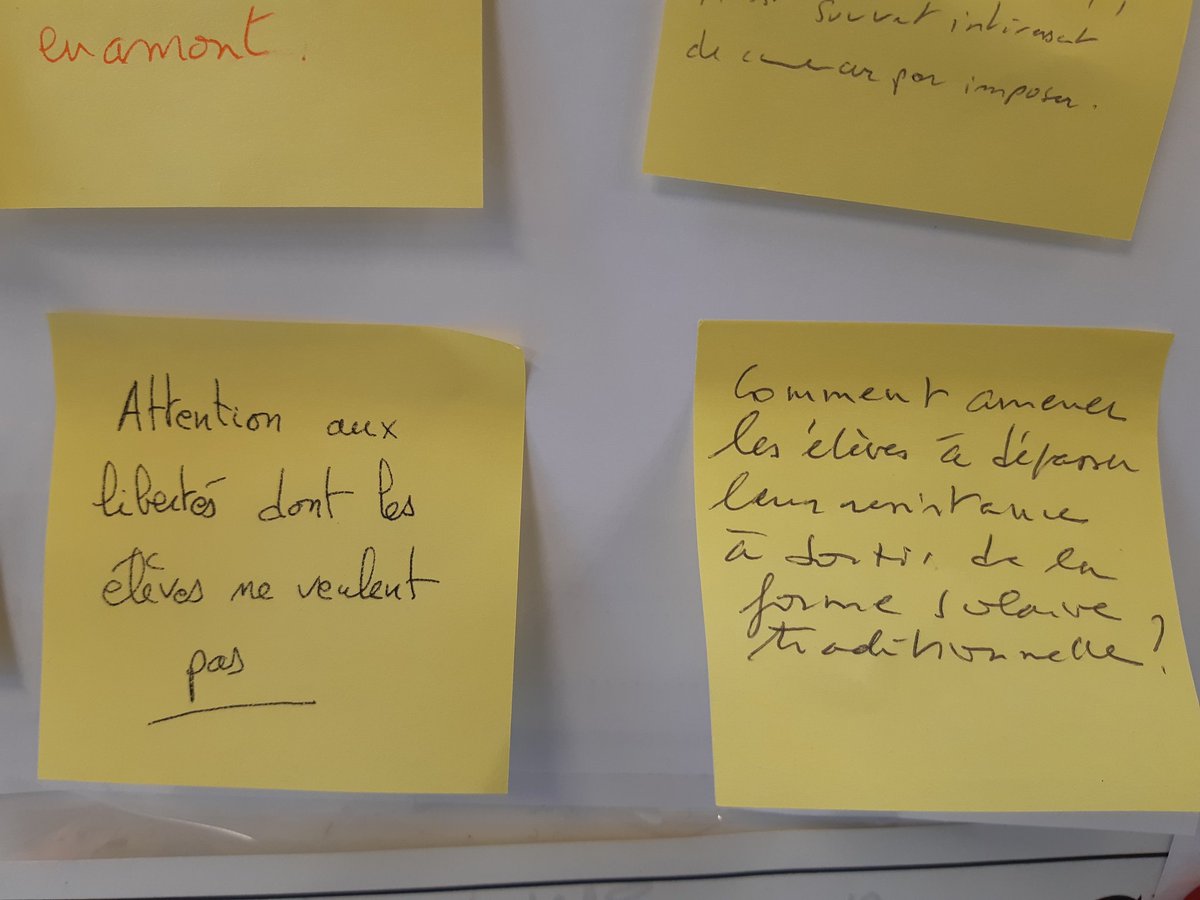 en amont.
souvent intéressant
de commencer par imposer.
Attention aux
libertés dont les
élèves ne veulent
pas
Comment amener
les élèves à dépasser
leur resistance
à sortir de la
forme scolaire
traditionnelle ?